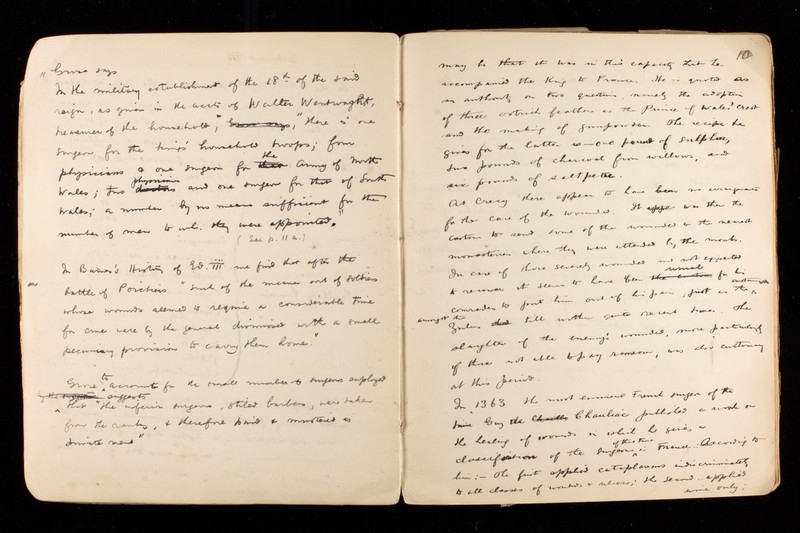 " Grose says
In the military establishment of the 18th of the said
reign, as given in the accts of Walter Wentwaght,
treasurer of the household, "there is one
surgeon for the king's household troops; four
physicians & one surgeon for the army of North
Wales; two physicians and one surgeon for that of South
Wales; a number by no means sufficient for the
number of men to wh. they were appointed."
( See p. 11 a. )
In Barnes's History of Ed. III we find that after the
battle of Poictiers "such of the meaner sort of soldiers
whose wounds seemed to require a considerable time
for cure were by the general dismissed with a small
pecuniary provision to carry them home."
Grose to account for the small number of surgeons employed
suggests
that "the inferior surgeons, stiled barbers, were taken
from the ranks, & therefore paid & mustered as
private men"
10
may be that it was in this capacity that he
accompanied the King to France. He is quoted as
an authority on two questions, namely the adoption
of three ostrich feathers as the Prince of Wales' crest
and the making of gunpowder. The recipe he
gives for the latter is one pound of sulphur,
two pounds of charcoal from willows, and
six pounds of saltpetre.
At Crecy there appear to have been no arrangements
for the care of the wounded. It was then the
custom to send some of the wounded to the nearest
monasteries where they were attended by the monks.
In case of those severely wounded and not expected
to recover it seems to have been usual for his
comrades to put him out of his pain, just as the custom was
amongst the
Zulus till within quite recent times. The
slaughter of the enemy's wounded, more particularly
of those not able to pay ransom, was also customary
at this period.
In 1363 the most eminent French surgeon of the
time Guy de Chauliac published a work on
the healing of wounds in which he gives a
classification of the surgeons of the time in France. According to
him :- The first applied cataplasms indiscriminately
to all classes of wounds & ulcers; the second applied
wine only;